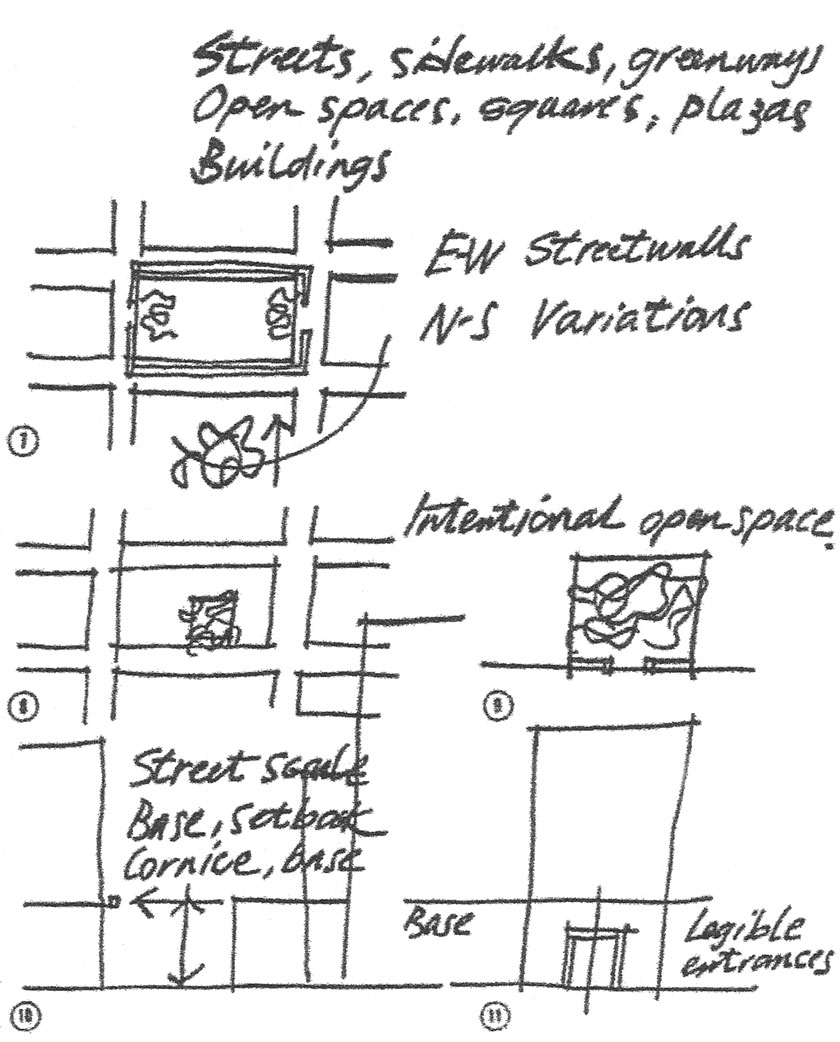 Streets, sidewalks, greenways
Open spaces, squares, plazas
Buildings
E-W Streetwalls
N-S Variations
7
Intentional open space
8
9
Street scale
Base, setback
Cornice, base
Base
Legible
entrances
10
11